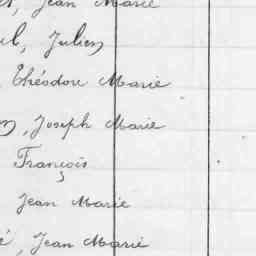 , Jean Marie
, Julien
Théodore Marie
, Joseph Marie
François
Jean Marie
, Jean Marie